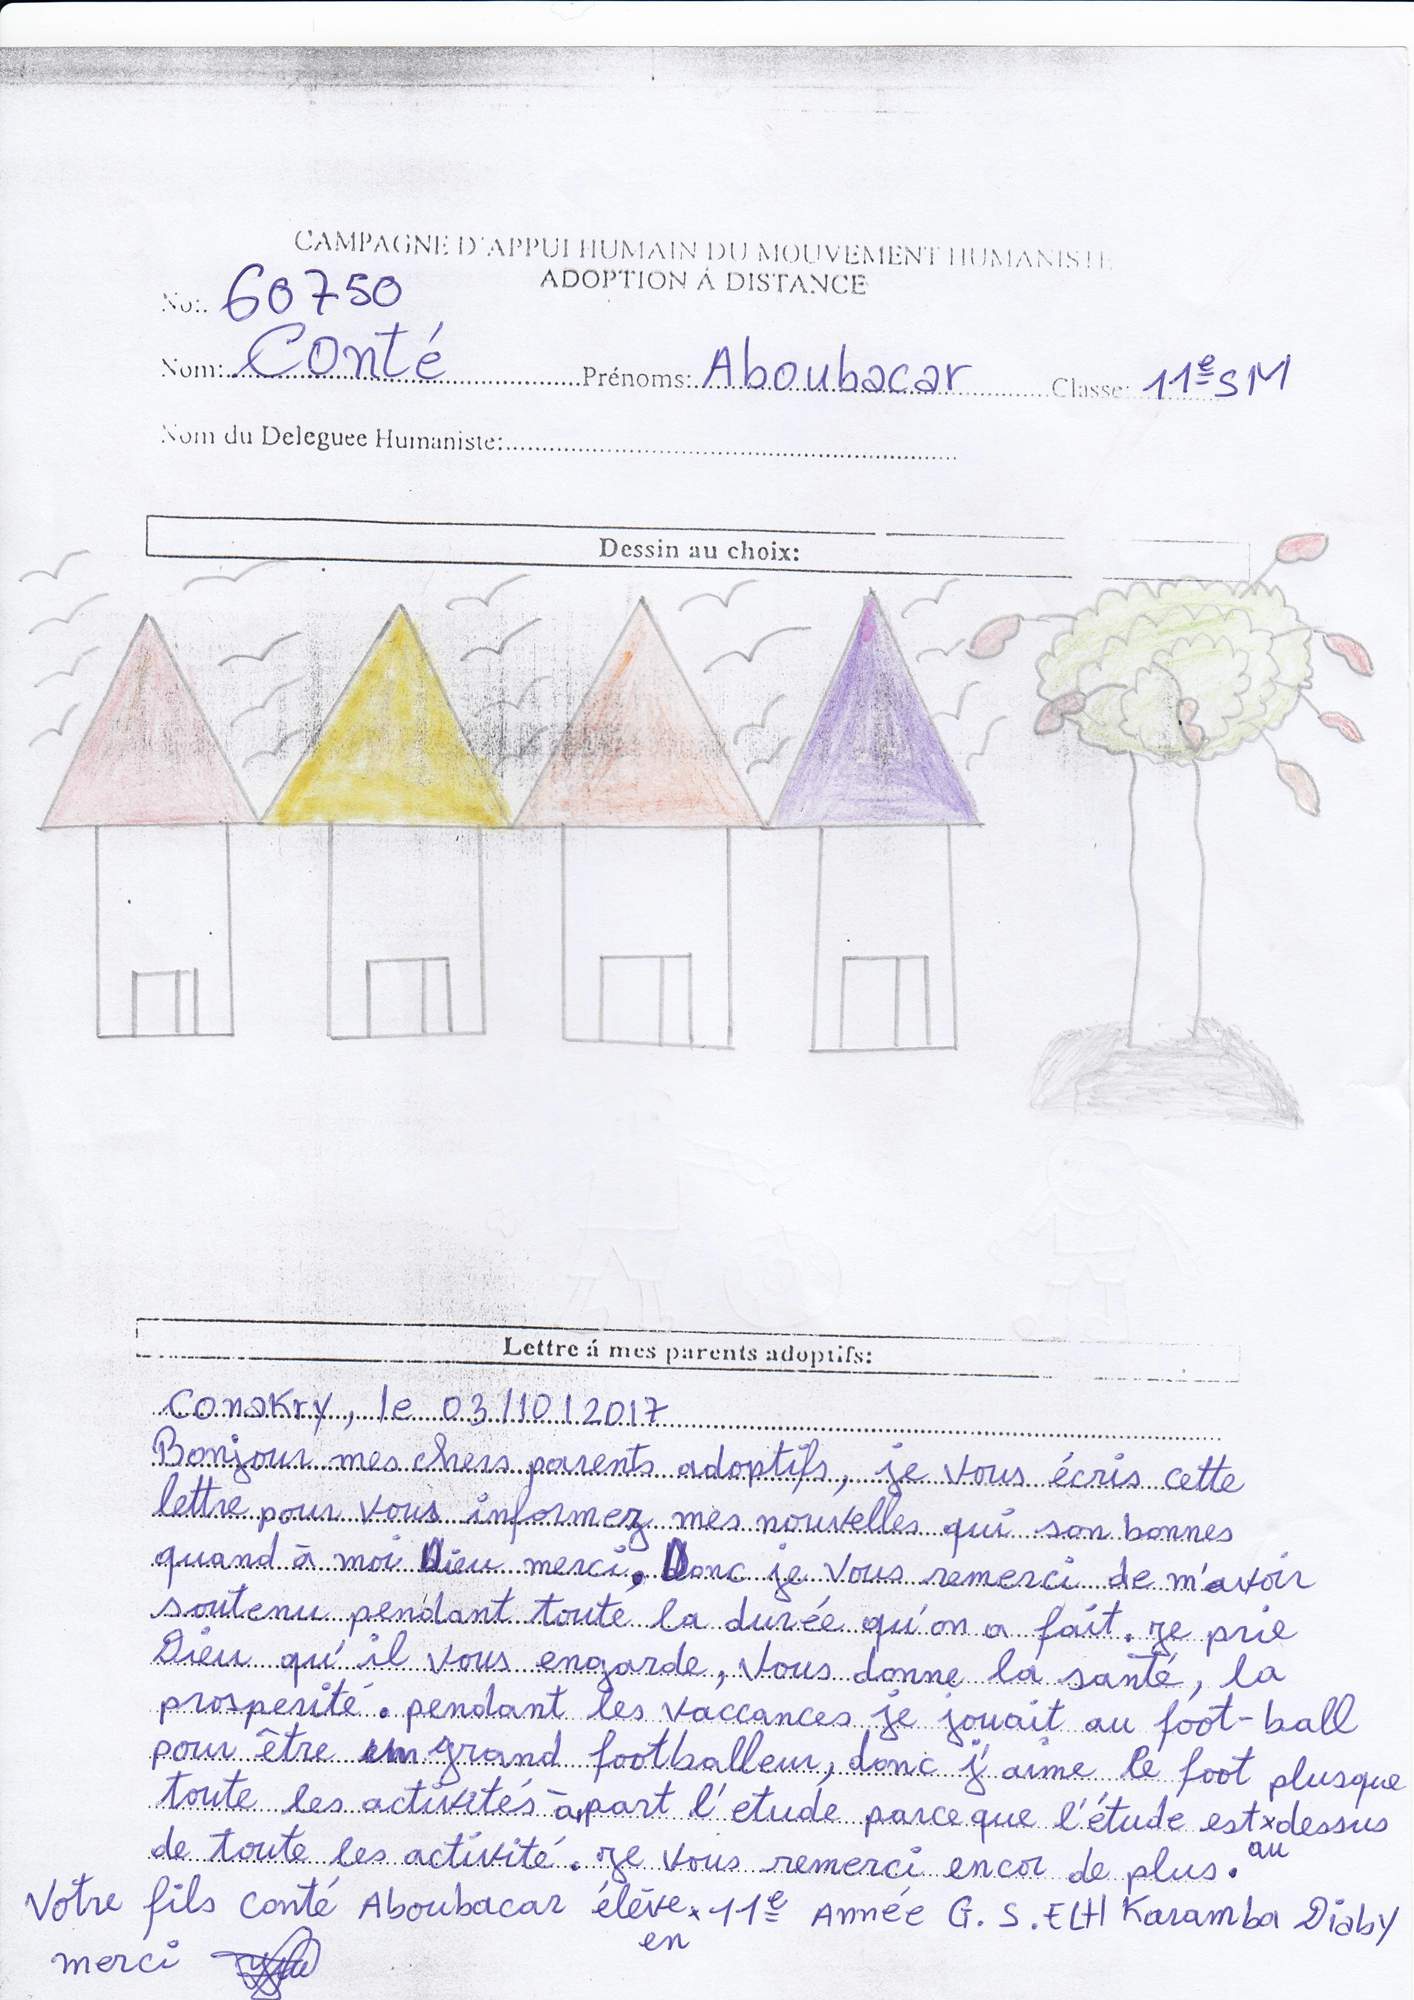 CAMPAGNE D'APPUI HUMAIN DU MOUVEMENT HUMANISTE
ADOPTION Á DISTANCE
No:. 60750
Nom: Conté Prénoms: Aboubacar Classe: 11e SM
Nom du Deleguee Humaniste:
Dessin au choix:
Lettre á mes parents adoptifs:
Conakry, le 03/10/2017
Bonjour mes chers parents adoptifs, je vous écris cette
lettre pour vous informez mes nouvelles qui son bonnes
quand à moi Dieu merci. Donc je vous remerci de m'avoir
soutenu pendant toute la durée qu'on a fait. Je prie
Dieu qu'il vous engarde, vous donne la santé, la
prosperité. pendant les vaccances je jouait au foot-ball
pour être un grand footballeur, donc j'aime le foot plusque
toute les activités à part l'etude parce que l'étude est x dessus
au
de toute les activité. Je vous remerci encor de plus.
Votre fils Conté Aboubacar élève x 11e Année G.S.ELH Karamba Diaby
en
merci